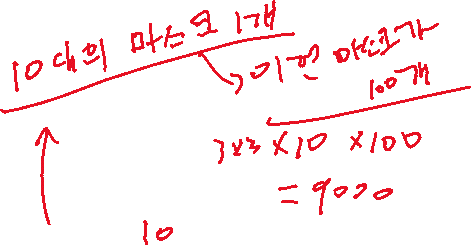 10 대의 마스크 1개
이런 마스크가
100개
3x3 x 10 x 100
= 9000
10